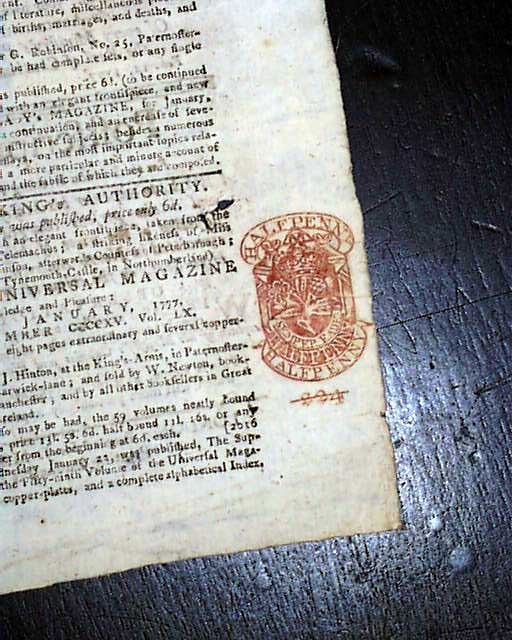 of literature, miscellaneous
of births, marriages, and deaths, and
G. Robinson, No. 25, Paternoster-
be had complete sets, or any single
published, price 6d. (to be continued
with an elegant frontispiece, and new
MAGAZINE, for January,
continuation, and an encrease of seve-
instructive to ladies; besides numerous
essays, on the most important topics rela-
a more particular and minute account of
and the fabric of which they are composed.
KING's AUTHORITY.
was published, price only 6d.
an elegant frontispiece, taken from the
Telemachus; a striking likeness of Miss
afterwards Countess of Peterborough;
Tynemouth Castle, in Northumberland,
UNIVERSAL MAGAZINE
ledge and Pleasure:
JANUARY, 1777,
CCCCXV. Vol. LX.
eight pages extraordinary and several copper-
J. Hinton, at the King's-Arms, in Paternoster-
arwick-lane; and sold by W. Newton, book-
anchester; and by all other booksellers in Great
Ireland.
may be had, the 59 volumes neatly bound
price 13l. 5s. 6d. half bound 11l. 16s. or any
from the beginning at 6d. each. [2016
January 22, was published, The Sup-
the Fifty-ninth Volume of the Universal Maga-
copper-plates, and a complete alphabetical Index,
HALFPENNY
HALFPENNY
224